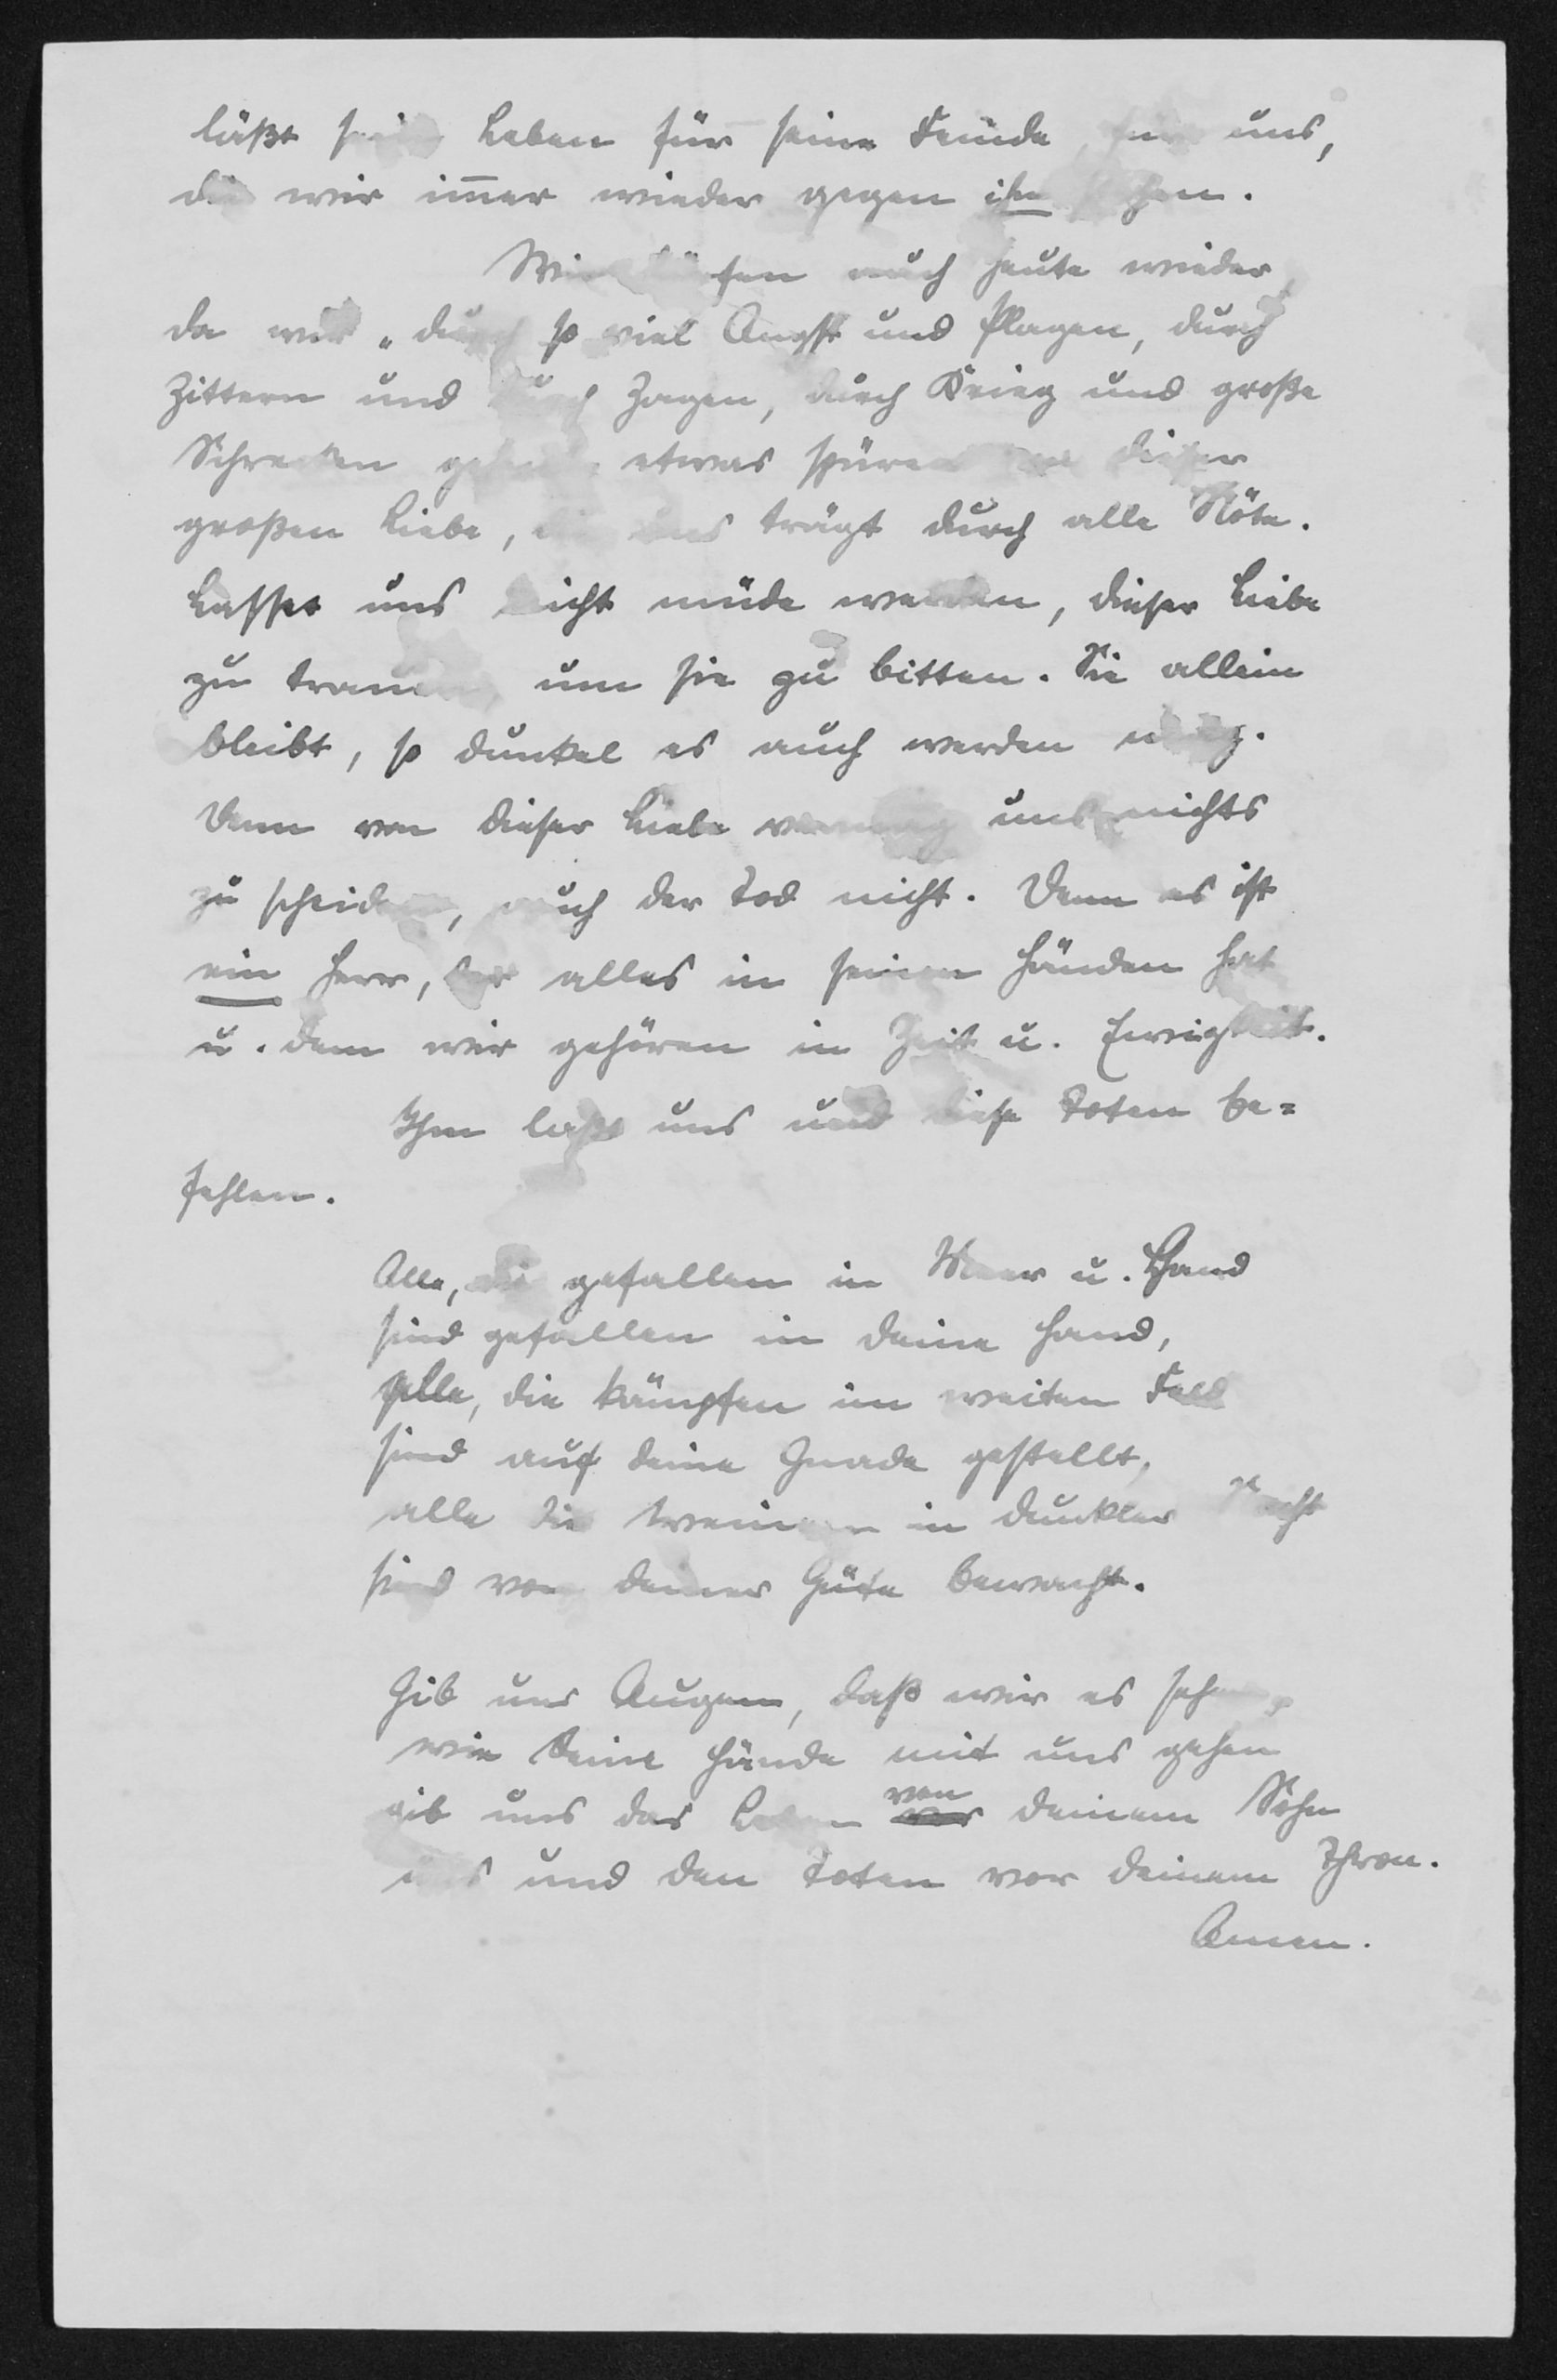 läßt sein Leben für seine Feinde, für uns,
die wir im̄er wieder gegen ihn stehen.
Wir dürfen auch heute wieder,
da wir „durch so viel Angst und Plagen, durch
Zittern und durch Zagen, durch Krieg und große
Schrecken gehen" etwas spüren von dieser
großen Liebe, die uns trägt durch alle Nöte.
Lasset uns nicht müde werden, dieser Liebe
zu trauen, um sie zu bitten. Sie allein
bleibt, so dunkel es auch werden mag.
Denn von dieser Liebe vermag uns nichts
zu scheiden, auch der Tod nicht. Denn es ist
ein Herr, der alles in seinen Händen hat
u. dem wir gehören in Zeit u. Ewigkeit.
Ihm laßt uns und diese Toten be=
fehlen.
Alle, die gefallen in Meer u. Land
sind gefallen in deine Hand,
alle, die kämpfen im weiten Feld
sind auf deine Gnade gestellt,
alle die weinen in dunkler Nacht
sind von deiner Güte bewacht.
Gib uns Augen, daß wir es sehen,
wie deine Hände mit uns gehen
gib uns das Leben von deinem Sohn
uns und den Toten vor deinem Thron.
Amen.